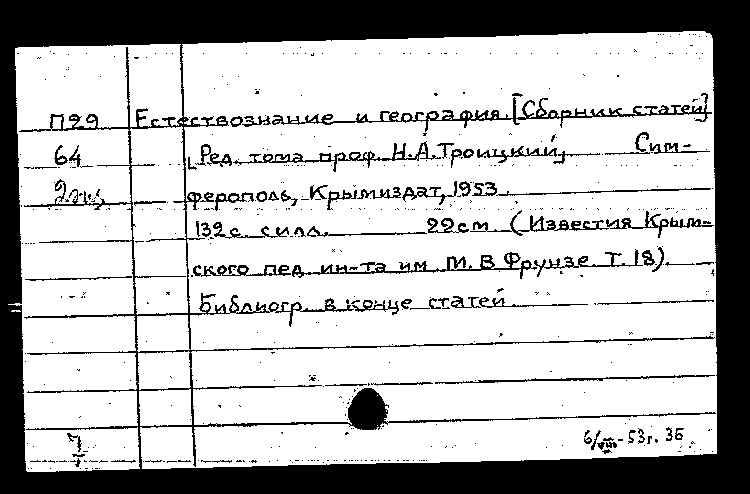 П29 Естествознание и география. [Сборник статей]
64 [Ред. тома проф. Н.А.Троицкий]. Сим-
2экз. ферополь, Крымиздат, 1953.
132 с. с илл. 22 см. (Известия Крым-
ского пед. ин-та им. М.В.Фрунзе. Т. 18).
Библиогр. в конце статей.
6/VIII-53г. 36